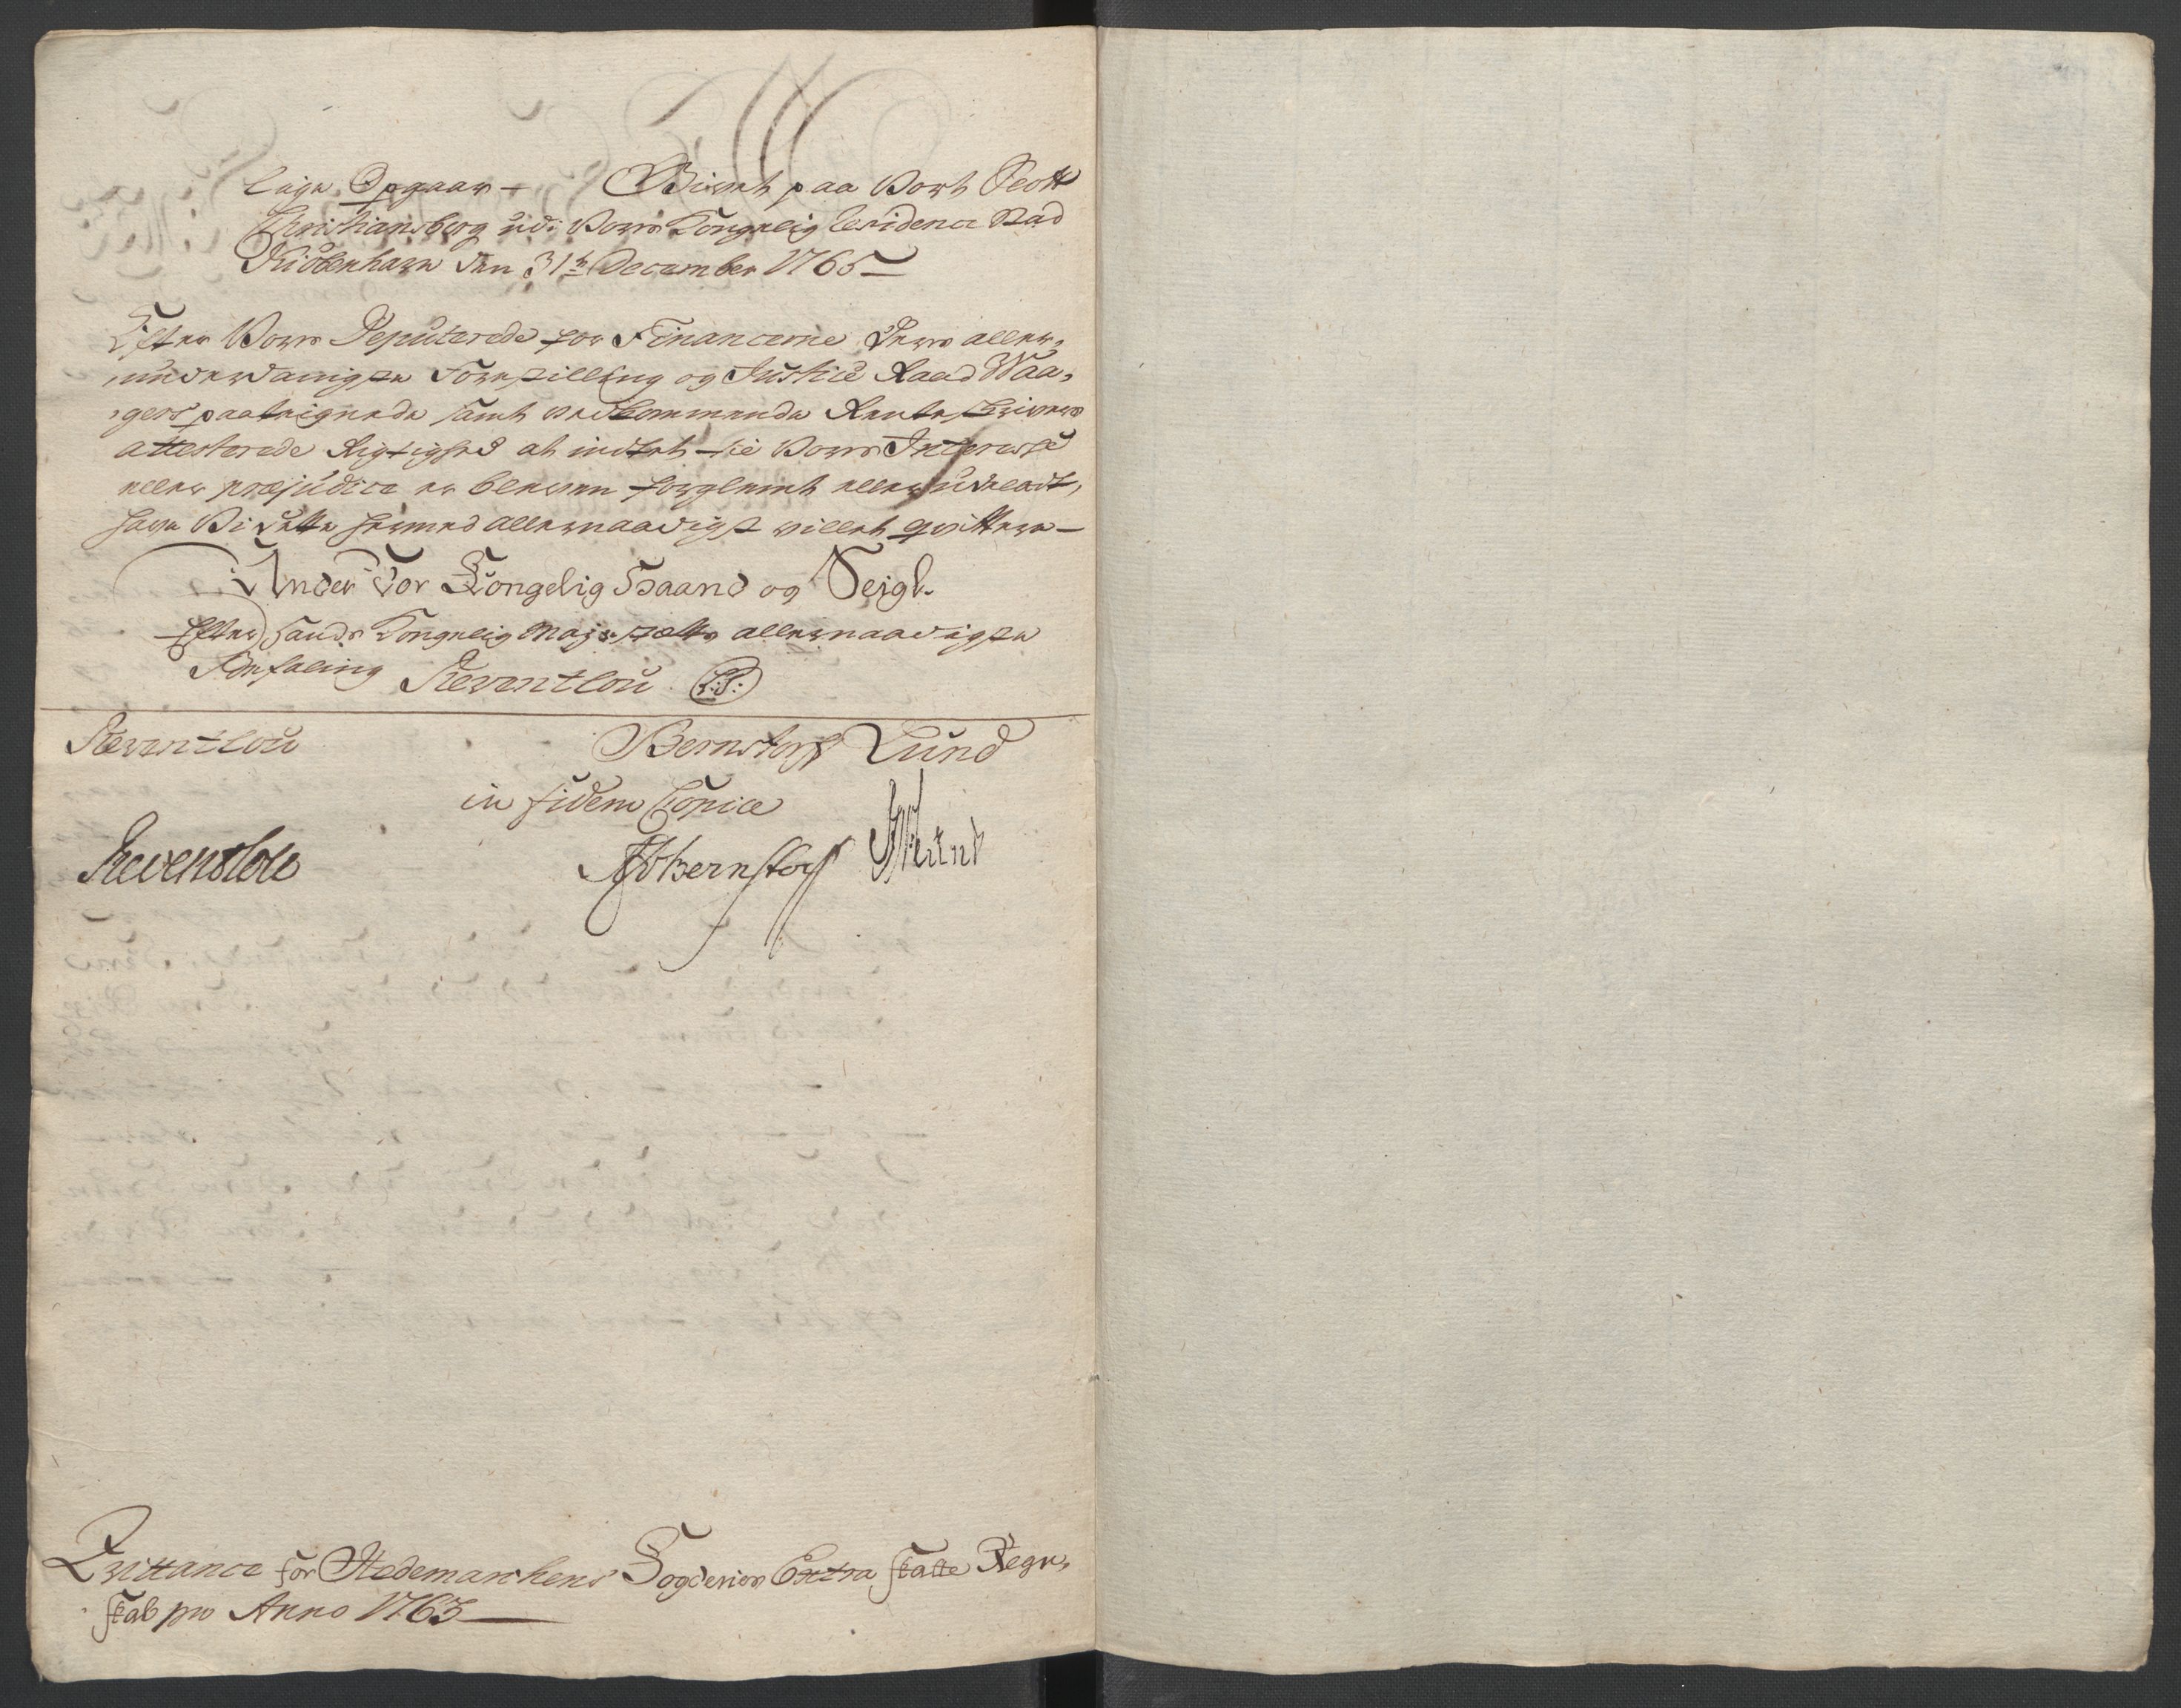 lige Opgaar – Givet paa Vort Slott
Christiansborg udi Vores Kongelig Residence Stad
Kiöbenhavn den 31te December 1765 –
Efter Vores Deputerede for Financerne deres aller,
,underdanigste Forestilling og Justice Raad Waa,
,gers paateignede samt vedkommende Renteskrivers
attesterede Rigtighed at intet til Vores Interesse
eller præjudice er bleven forglemt eller udeladt,
have Vi dette hermed allernaadigst villet qvittere –
Under Vor Kongelig Haand og Seigl.
Efter Hands Kongelig Majestætts allernaadigste
Befaling Reventlou (L:S:)
Reventlou Bernstorff Lund
in fidem Copiæ
Reventlou Bernstorff Lund
Qvittance for Hedemarchens Fogderies Extra Skatte Regn,
skab pro Anno 1763 –